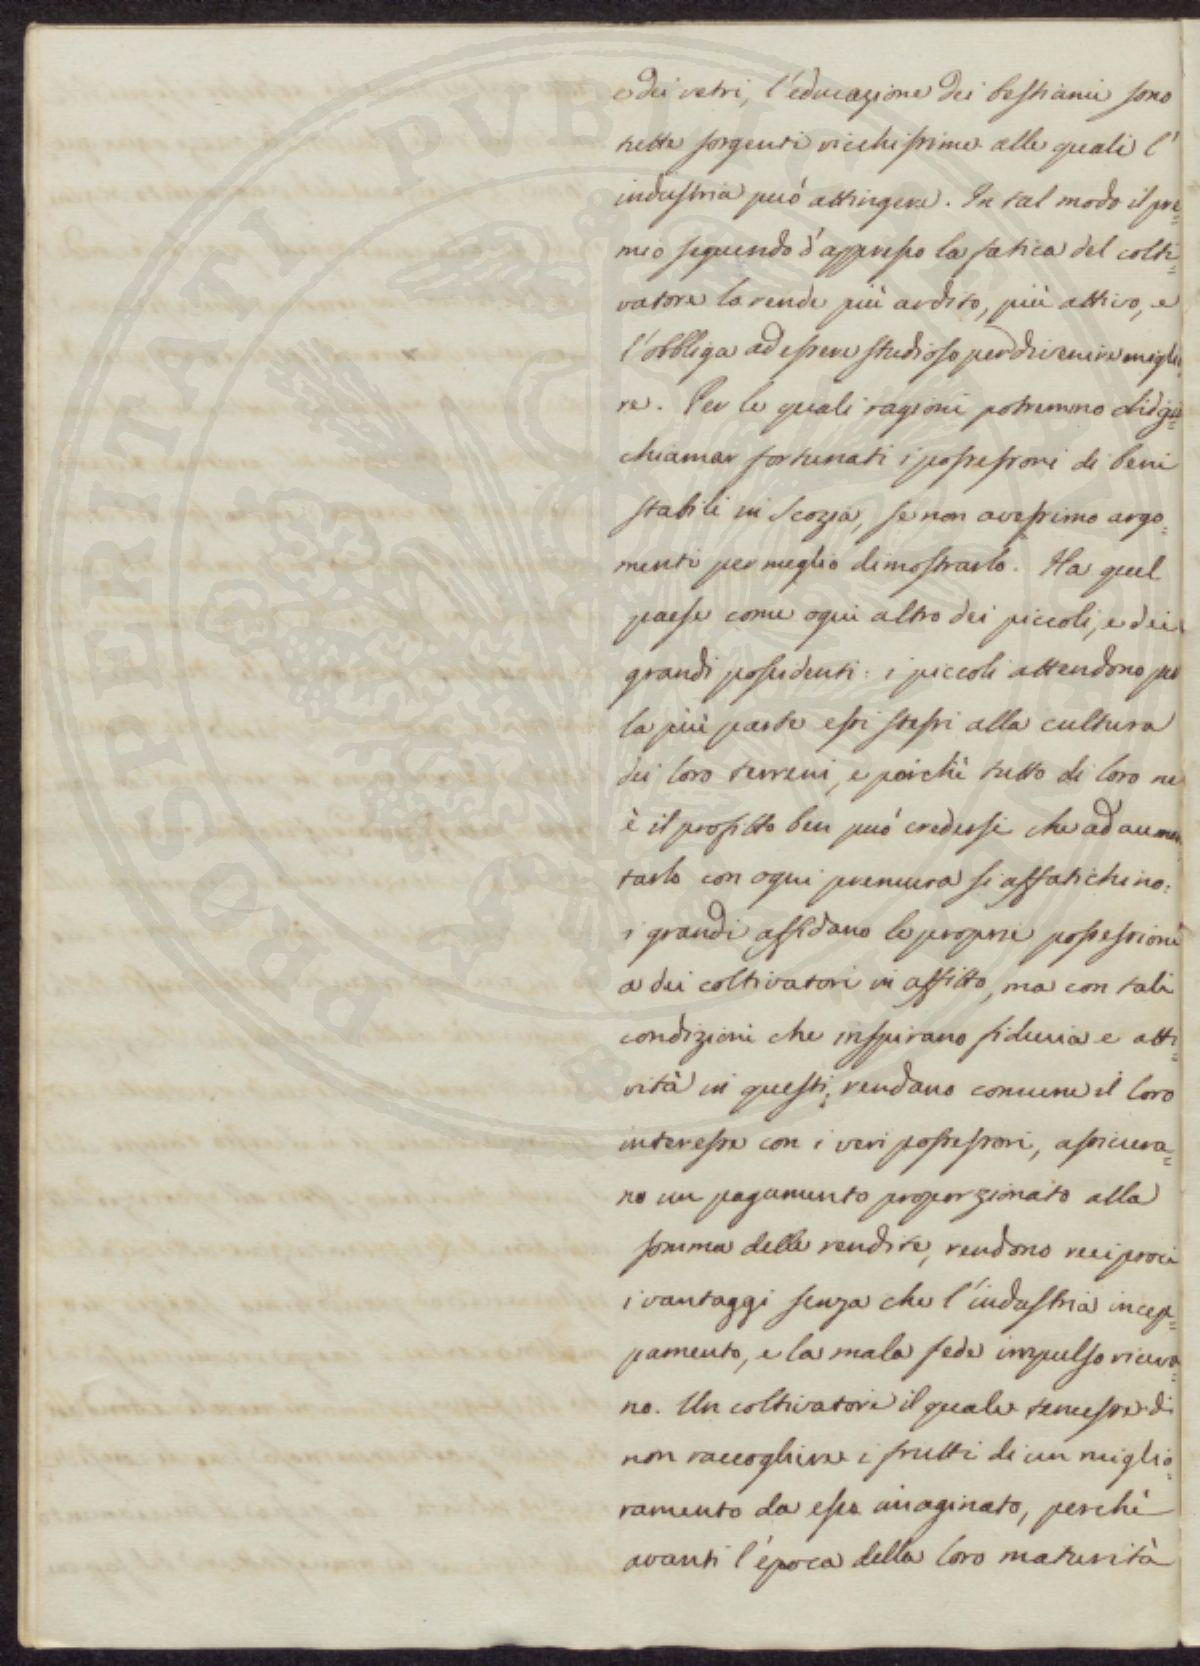 e dei vetri, l'educazione dei bestiami sono
tutte sorgenti ricchissime alle quali l'
industria può attingere. In tal modo il pre=
mio seguendo d'appresso la fatica del colti=
vatore lo rende più ardito, più attivo, e
l'obbliga ad essere studioso per divenire miglio
re. Per le quali ragioni potremmo di già
chiamar fortunati i possessori di beni
stabili in Scozia, se non avessimo argo=
menti per meglio dimostrarlo. Ha quel
paese come ogni altro dei piccoli, e dei
grandi possidenti: i piccoli attendono per
la più parte essi stessi alla cultura
dei loro terreni, e poichè tutto di loro ne
è il profitto ben può credersi che ad aumen
tarlo con ogni premura si affatichino:
i grandi affidano le proprie possessioni
a dei coltivatori in affitto, ma con tali
condizioni che inspirano fiducia e atti=
vità in questi, rendano comune il loro
interesse con i veri possessori, assicura=
no un pagamento proporzionato alla
somma delle rendite, rendono reciproci
i vantaggi senza che l'industria incep=
pamento, e la mala fede impulso riceva=
no. Un coltivatore il quale temesse di
non raccogliere i frutti di un miglio=
ramento da esso imaginato, perchè
avanti l'época della loro maturità
PROSPERITATI PUBLICAE